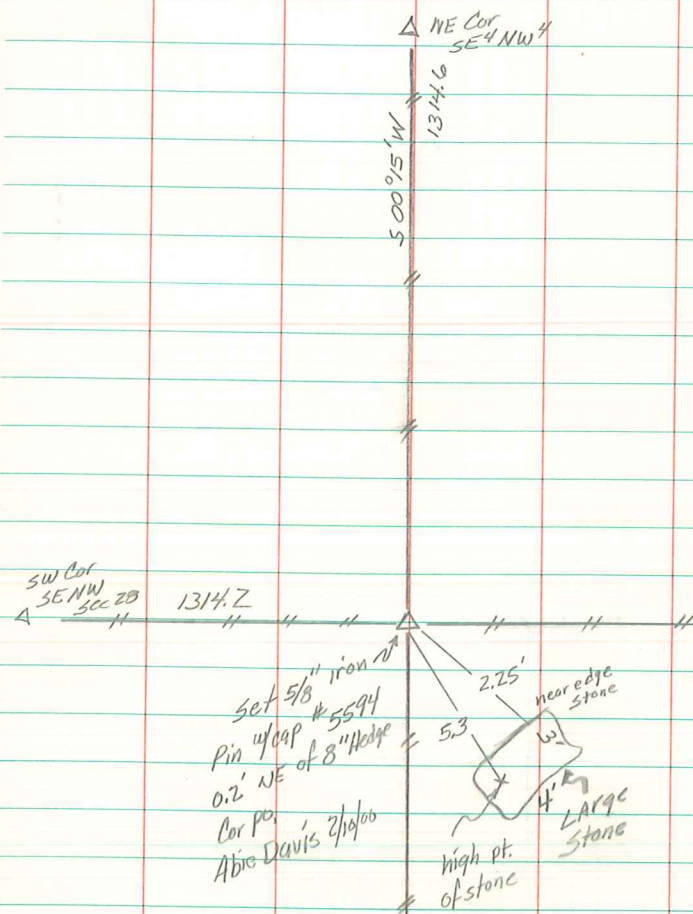 NE Cor
SE4 NW4
1314.6
S 00°15' W
SW Cor
SENW
Sec 28
1314.2
Set 5/8" iron
Pin w/cap #5594
0.2' NE of 8" Hedge
Cor po.
Abie Davis 2/10/00
2.25'
near edge
stone
5.3
3'
4'
LArge
Stone
high pt.
of stone